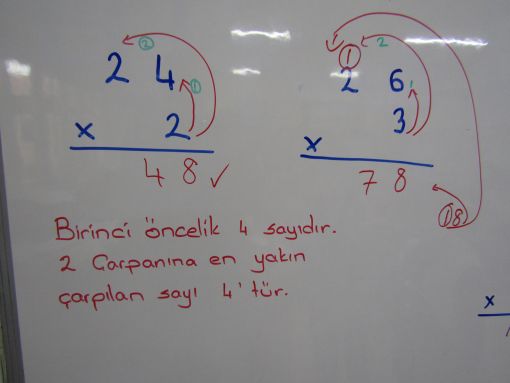 ②
2 4 ①
x 2
4 8 ✓
1 ① 2
2 6 1
x 3
7 8
18
Birinci öncelik 4 sayıdır.
2 Çarpanına en yakın
çarpılan sayı 4'tür.
x